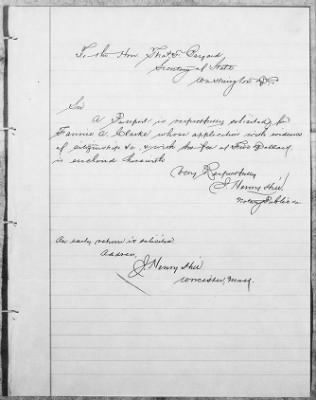 To the Hon. Thos. F. Bayard,
Secretary of State
Washington D.C.
Sir
A Passport is respectfully solicited for
Fannie C. Clarke whose application with evidence
of citizenship &c. with the fee of Five Dollars
is enclosed herewith
Very Respectfully
J. Henry Hill
Notary Public
An early return is solicited
Address,
J. Henry Hill
Worcester, Mass.